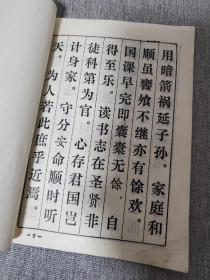 用暗箭祸延子孙。家庭和
顺虽饔飧不继亦有馀欢。
国课早完即囊橐无馀，自
得至乐。读书志在圣贤非
徒科第为官。心存君国岂
计身家。守分安命顺时听
天，为人若此庶乎近焉。